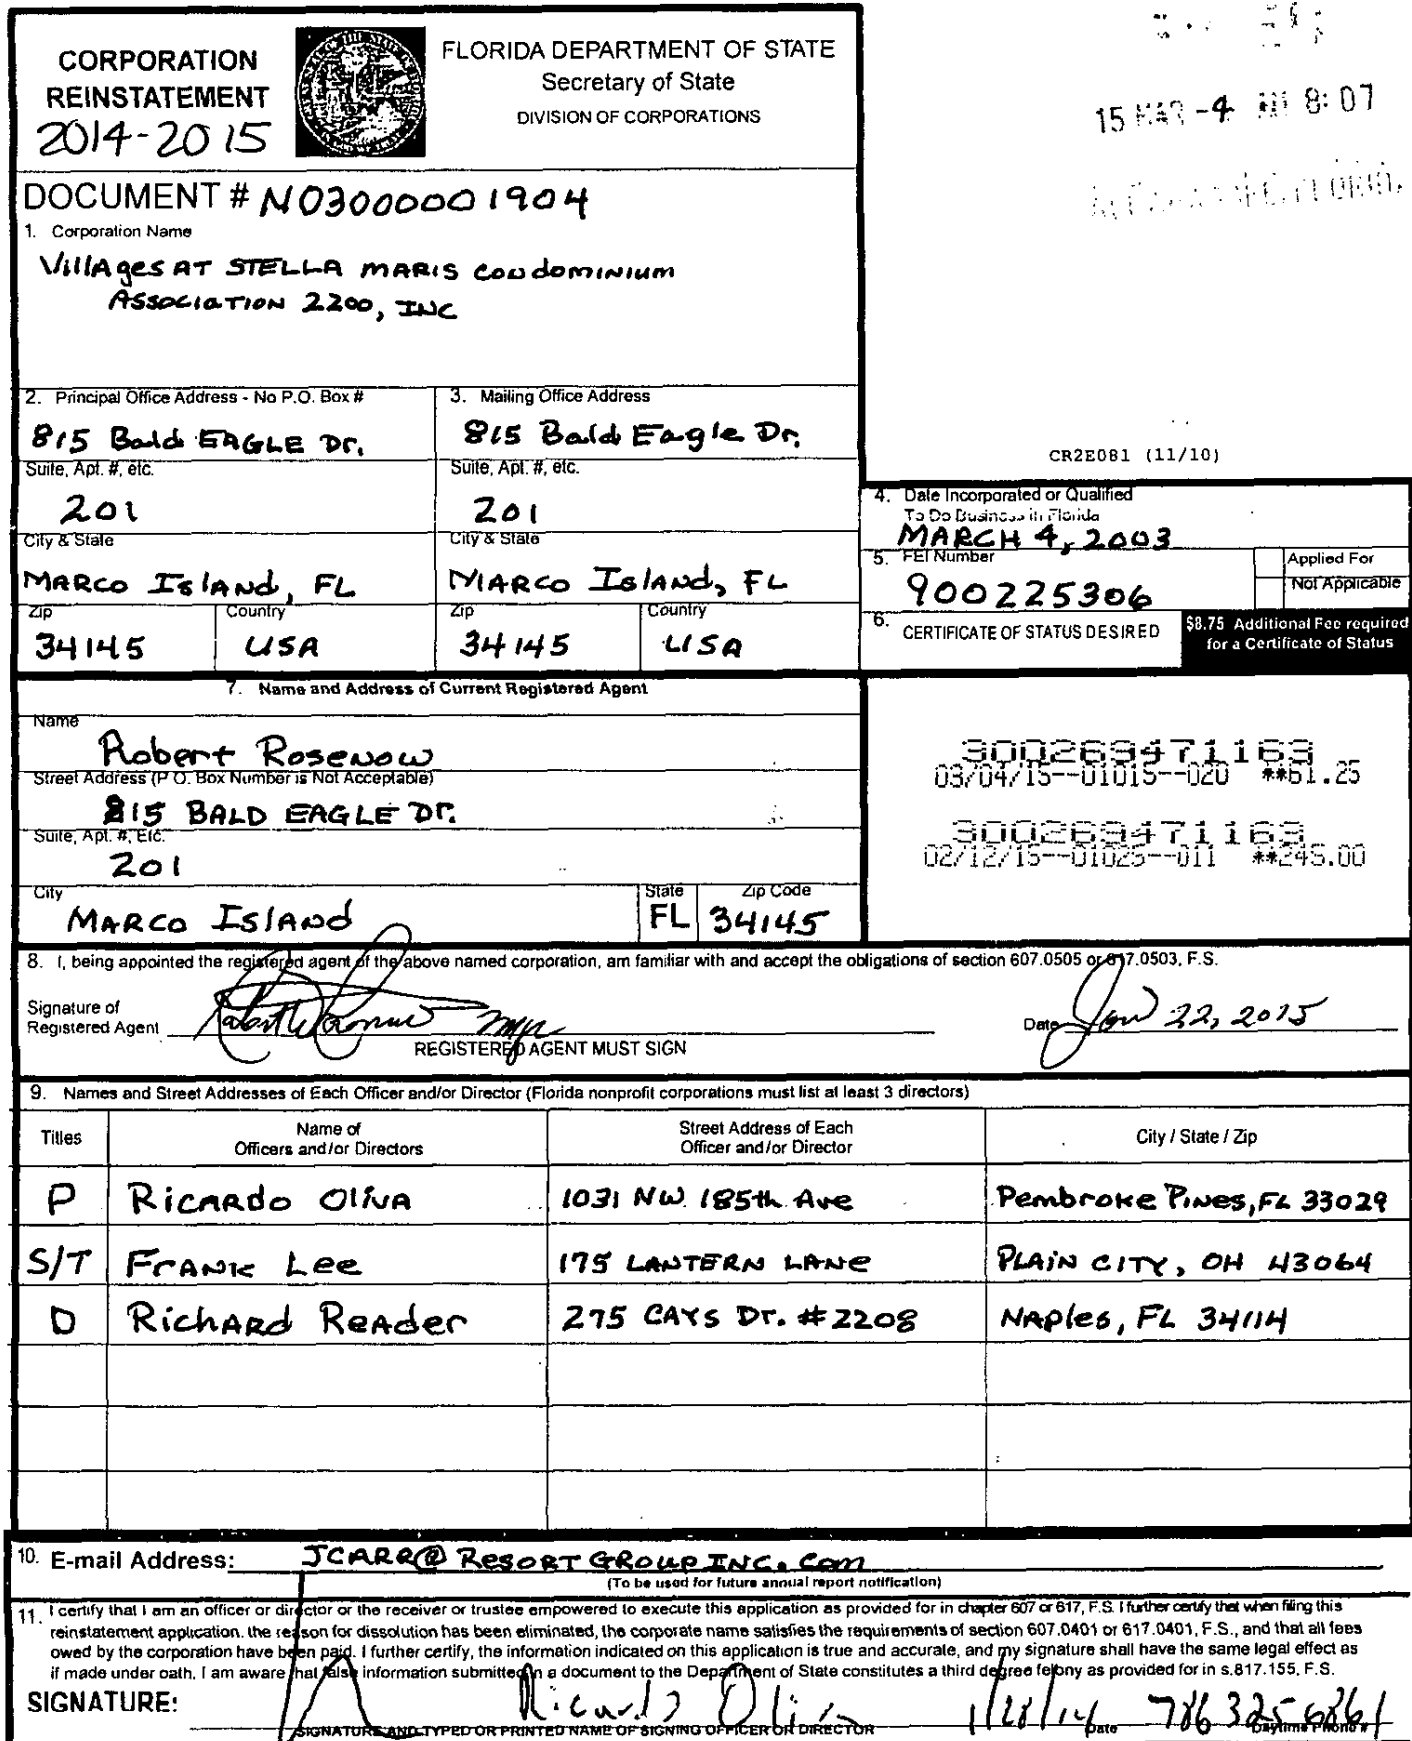 CORPORATION
REINSTATEMENT
2014-2015
FLORIDA DEPARTMENT OF STATE
Secretary of State
DIVISION OF CORPORATIONS
15 MAR -4 AM 8:07
DOCUMENT # N03000001904
1. Corporation Name
VillAges AT STELLA MARIS CONDOMINIUM
ASSOCIATION 2200, INC
2. Principal Office Address - No P.O. Box #
3. Mailing Office Address
815 Bald EAGLE Dr.
815 Bald Eagle Dr.
CR2E081 (11/10)
Suite, Apt. #, etc.
Suite, Apt. #, etc.
201
201
4. Date Incorporated or Qualified
To Do Business in Florida
MARCH 4, 2003
City & State
City & State
MARCO IslAND, FL
MARCO IslAND, FL
5. FEI Number
900225306
Applied For
Not Applicable
Zip
Country
Zip
Country
34145
USA
34145
USA
6. CERTIFICATE OF STATUS DESIRED
$8.75 Additional Fee required
for a Certificate of Status
7. Name and Address of Current Registered Agent
Name
Robert Rosenow
Street Address (P.O. Box Number is Not Acceptable)
815 BALD EAGLE Dr.
Suite, Apt. #, Etc.
201
City
State
Zip Code
MARCO IslAND
FL
34145
300269471163
03/04/15--01015--020 **61.25
300269471163
02/12/15--01025--011 **245.00
8. I, being appointed the registered agent of the above named corporation, am familiar with and accept the obligations of section 607.0505 or 617.0503, F.S.
Signature of
Registered Agent
Date Jan 22, 2015
REGISTERED AGENT MUST SIGN
9. Names and Street Addresses of Each Officer and/or Director (Florida nonprofit corporations must list at least 3 directors)
Titles
Name of
Officers and/or Directors
Street Address of Each
Officer and/or Director
City / State / Zip
P Ricardo Oliva 1031 NW 185th Ave Pembroke Pines, FL 33029
S/T Frank Lee 175 LANTERN LANE PLAIN CITY, OH 43064
D Richard Reader 275 CAYS Dr. #2208 NAples, FL 34114
10. E-mail Address: JCARR@RESORTGROUPINC.COM
(To be used for future annual report notification)
11. I certify that I am an officer or director or the receiver or trustee empowered to execute this application as provided for in chapter 607 or 617, F.S. I further certify that when filing this
reinstatement application, the reason for dissolution has been eliminated, the corporate name satisfies the requirements of section 607.0401 or 617.0401, F.S., and that all fees
owed by the corporation have been paid. I further certify, the information indicated on this application is true and accurate, and my signature shall have the same legal effect as
if made under oath. I am aware that false information submitted in a document to the Department of State constitutes a third degree felony as provided for in s.817.155, F.S.
SIGNATURE: Ricardo Oliva 1/28/14 786 325 6861
SIGNATURE AND TYPED OR PRINTED NAME OF SIGNING OFFICER OR DIRECTOR
Date
Daytime Phone #